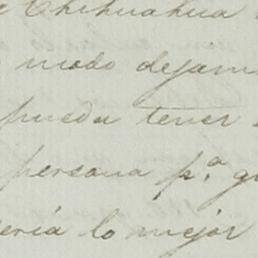 Chihuahua
modo dejam
pueda tener
persona p.ª q
ería lo mejor